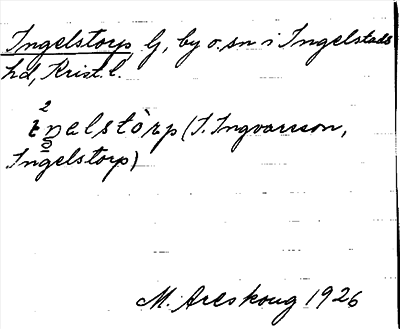 Ingelstorp Lj, by o. sn i Ingelstads
hd, Krist. l.
2
(S. Ingvarsson,
Ingelstorp)
M. Areskoug 1926